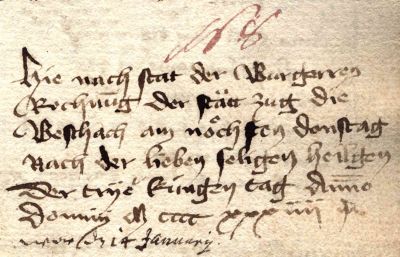 Hie nach stat der Burgerren
Rechnũg der stătt zug die
Beschach am nöchsten donstag
Nach der lieben seligen heiligen
Der tryͤe kúngen tag Anno
domini M cccc xxxiiii
14 January.